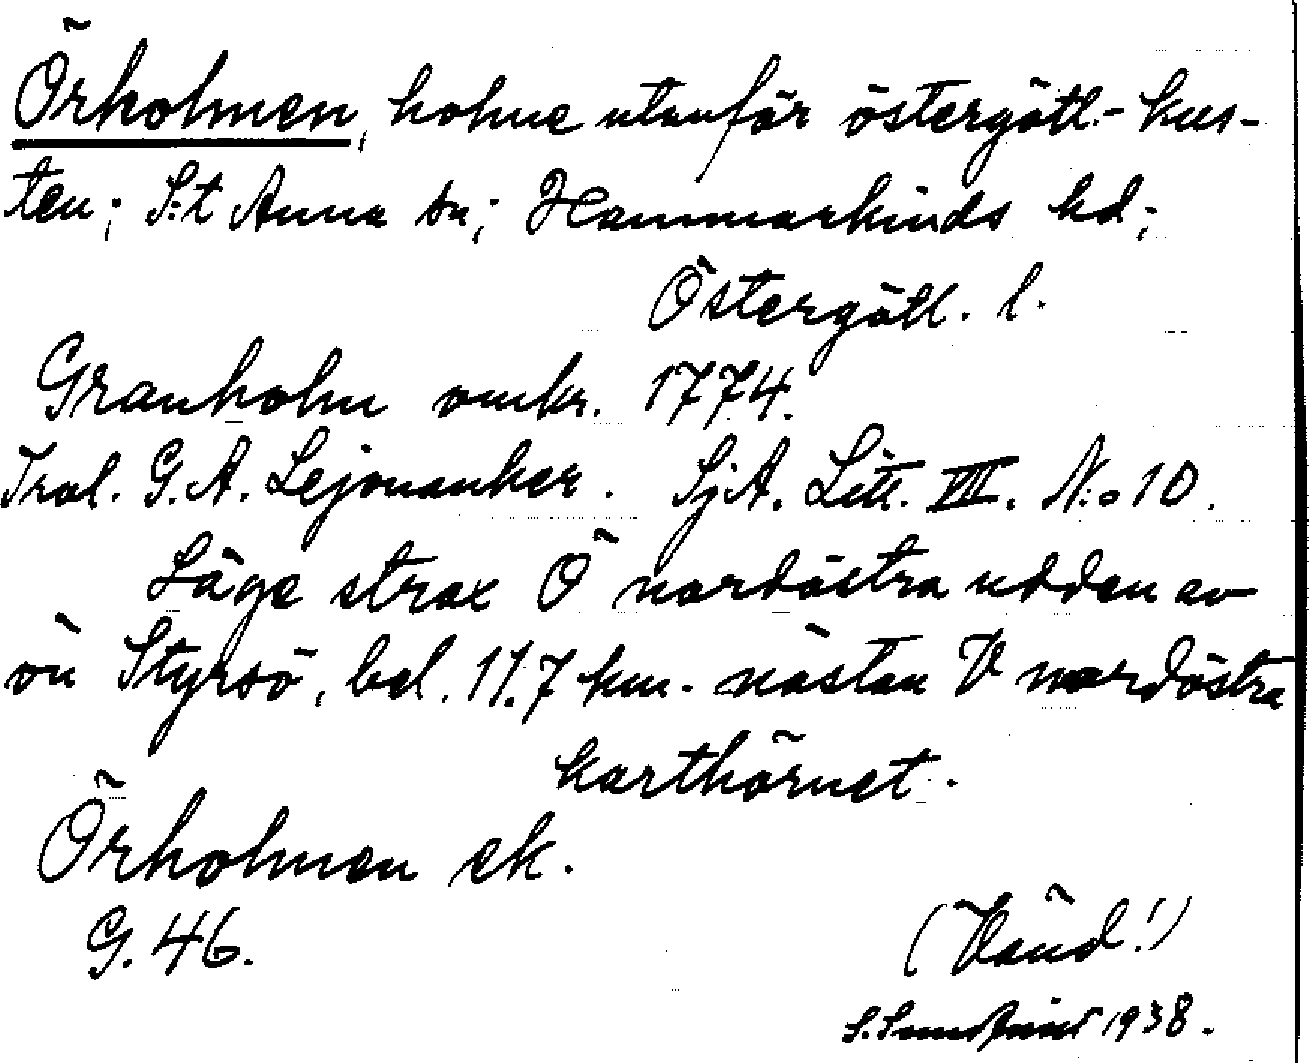 Örholmen, holme utanför östergötl.-kus-
ten; S:t Anna sn; Hammarkinds hd;
Östergötl. l.
Granholm omkr. 1774.
Tral. G. A. Lejonanker. SjA. Litt. VII. N:o 10.
Läge strax Ö nordöstra udden av
ön Styrsö, bel. 11.7 km. nästan V nordöstra
karthörnet.
Örholmen ek.
G. 46.
(Vänd!)
1938.